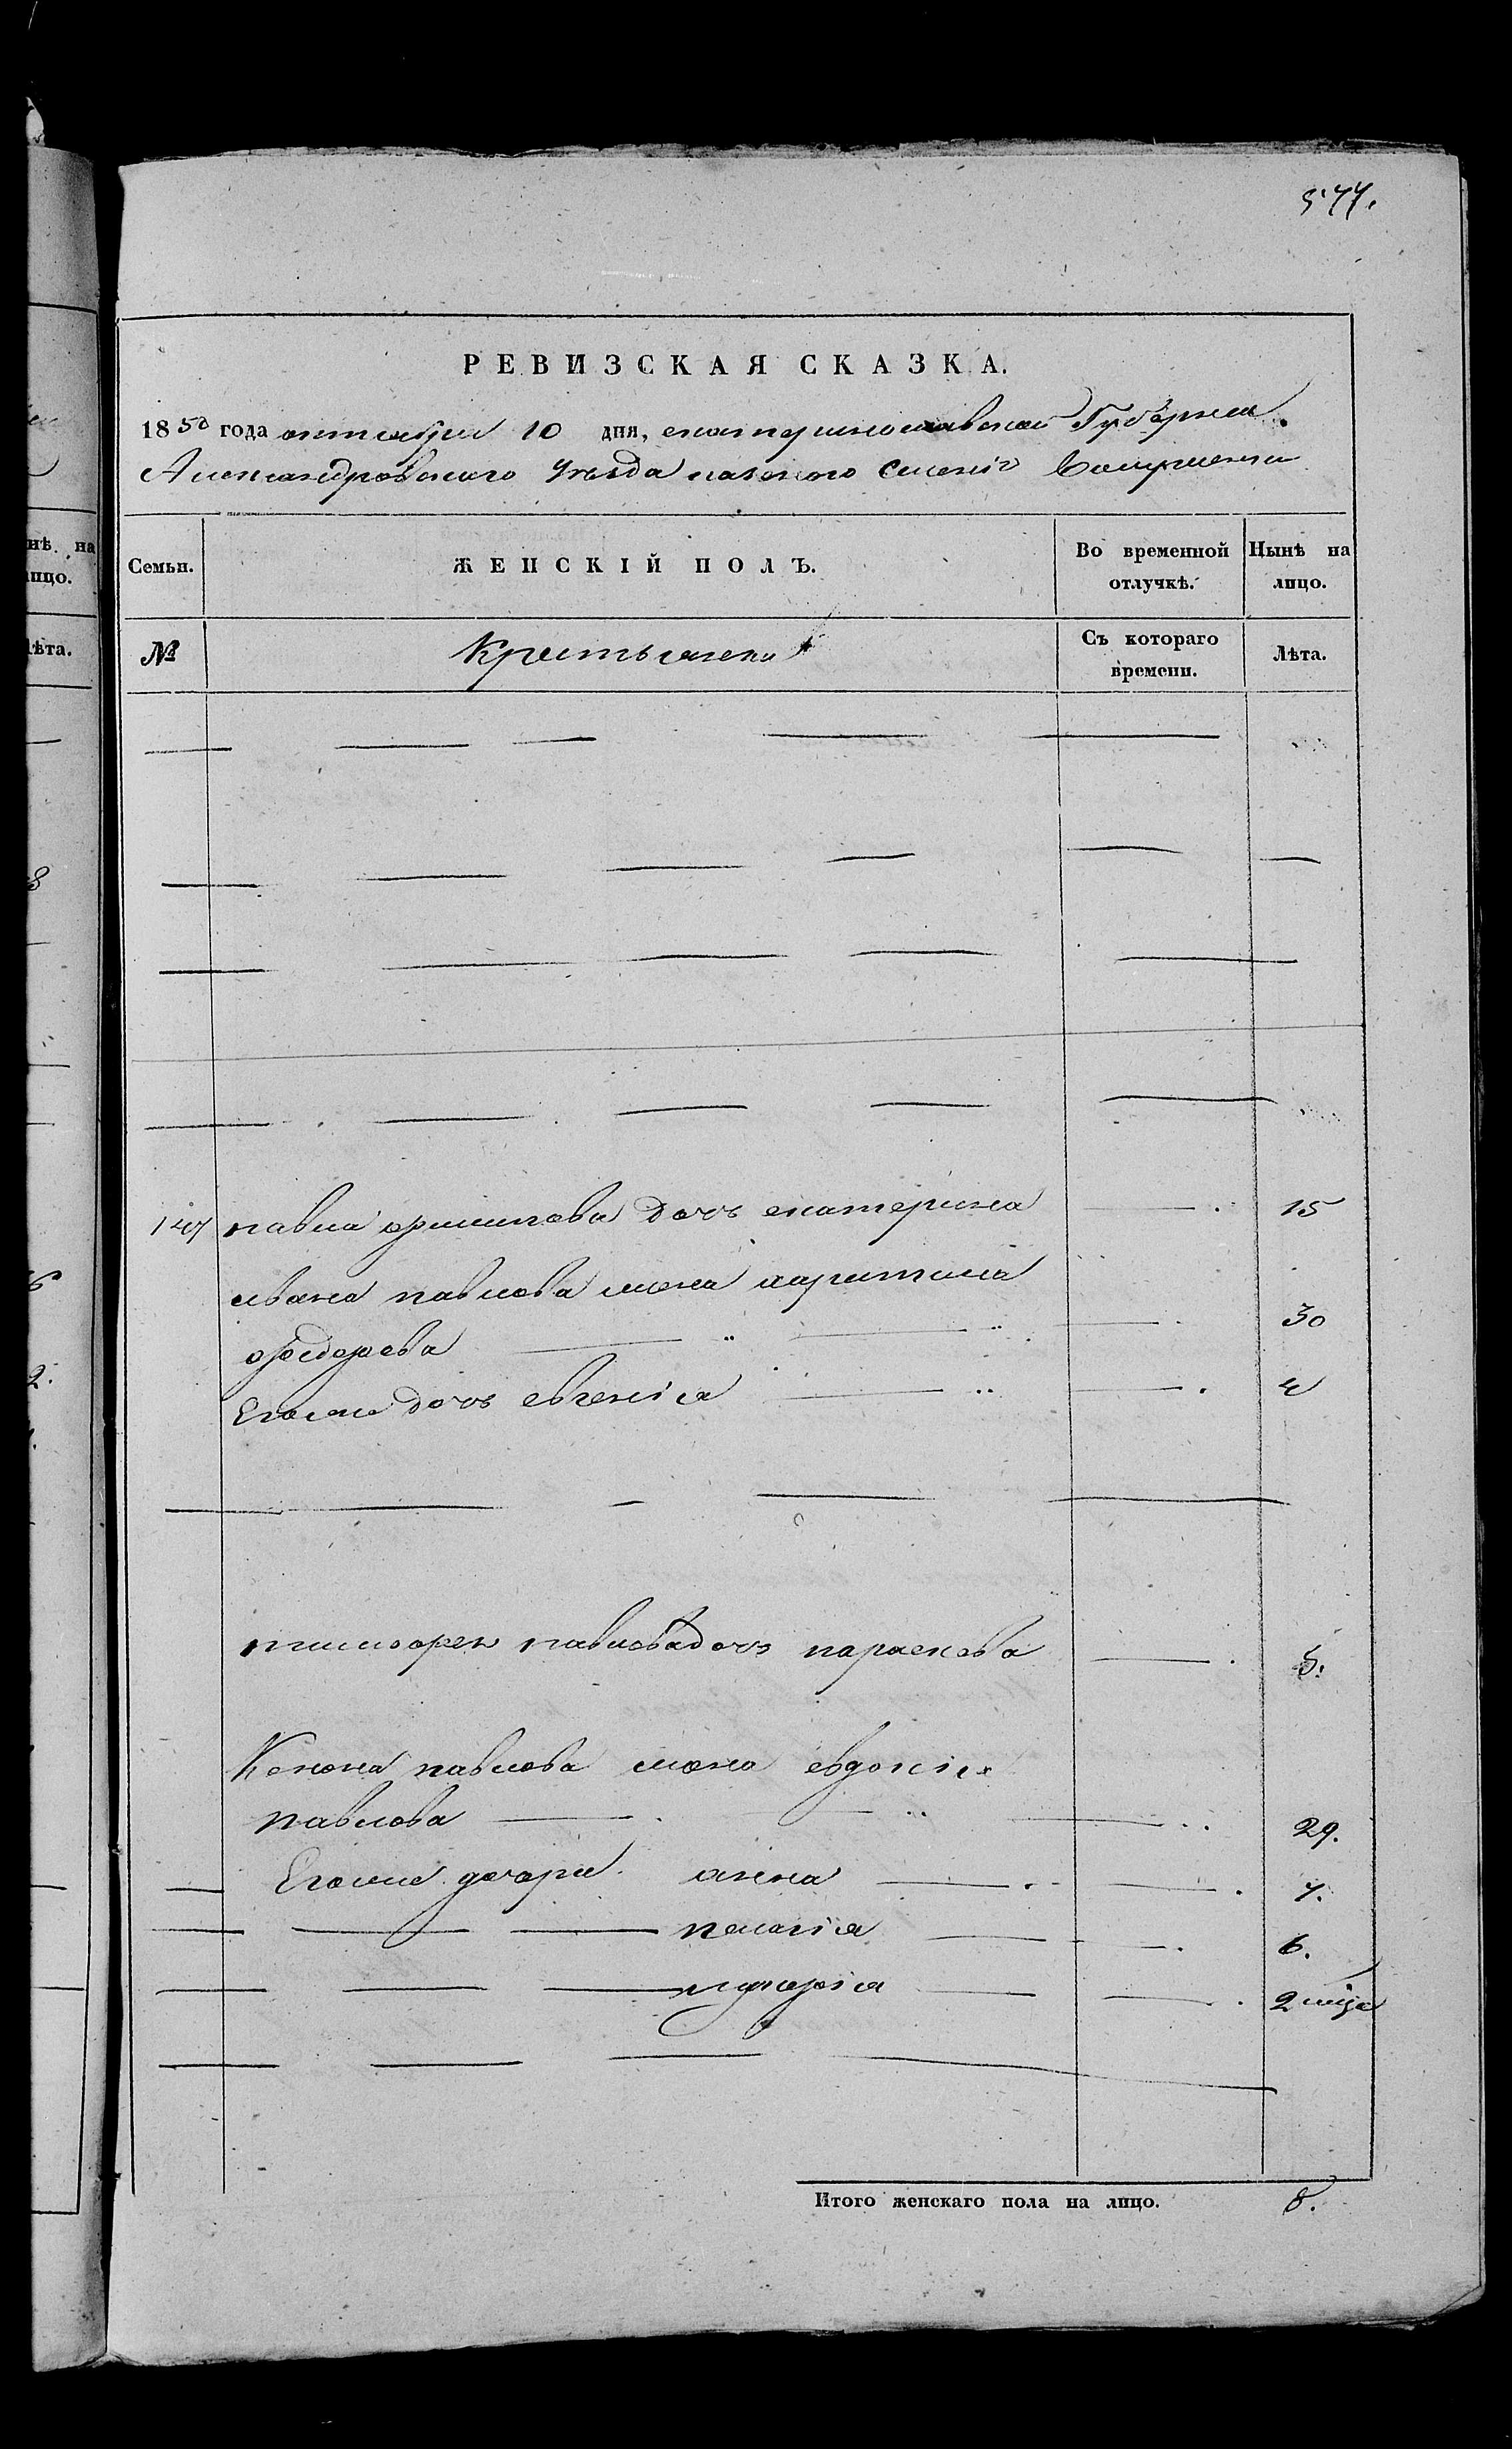 577.
РЕВИЗСКАЯ СКАЗКА.
1850 года октября 10 дня, екатеринославской Губернiи
Александровского Уѣзда казеного Селенiя
Семьи. ЖЕНСКІЙ ПОЛЪ. Во временной отлучкѣ. Нынѣ на лицо.
№ Крестьянки Съ котораго времени. Лѣта.
147 павла архипова дочь екатерина 15
ивана павлова жена харитина
федорова 30
Егоже дочь евгенія 4
тимофея павлова дочь параскева 5.
Конона павлова жена евдокія
павлова 29.
Егоже дочери анна 7.
пелагія 6.
лукерія 2 мѣца
Итого женскаго пола на лицо. 8.
нѣ на
лицо.
Лѣта.